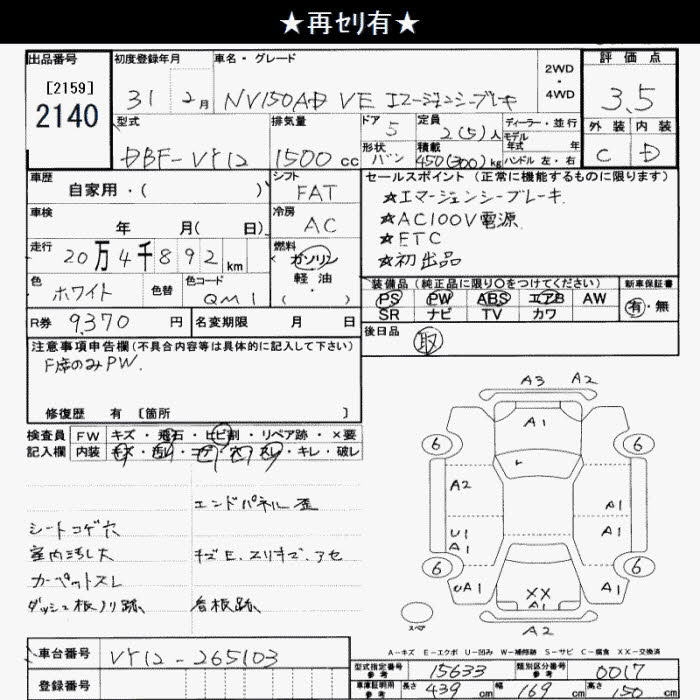 ★再ｾﾘ有★
出品番号
[2159]
2140
初度登録年月
31年 2月
車名・グレード
NV150AD VE エマージェンシーブレーキ
2WD
・
4WD
評価点
3.5
外装 内装
C D
型式
DBF-VY12
排気量
1500 cc
ドア 5
形状 バン
定員 2(5)人
積載 450(300)kg
ディーラー・並行
モデル年式 年
ハンドル 左・右
車歴
自家用・( )
シフト
FAT
車検
年 月( 日)
冷房
AC
走行
20万4千892km
燃料
ガソリン
軽油・
( )
色
ホワイト
色替
色コード
QM1
R券 9,370 円
名変期限 月 日
セールスポイント(正常に機能するものに限ります)
★エマージェンシーブレーキ.
★AC100V電源.
★ETC
★初出品
装備品(純正品に限り○をつけてください)
PS PW ABS エアB AW
SR ナビ TV カワ
新車保証書
有・無
後日品
取
注意事項申告欄(不具合内容等は具体的に記入して下さい)
F席のみPW.
修復歴 有 [箇所 ]
検査員記入欄
FW キズ・飛石・ヒビ割・リペア跡・×要
内装 キズ・汚レ・コゲ・穴・スレ・キレ・破レ
エンドパネル歪
シートコゲ穴
室内汚レ大
キズE.スリキズ.アセ
カーペットスレ
ダッシュ板ノリ跡、
看板跡、
A3 A2
A1
6 6
A2
A1
U1
A1
A1
6 6
UA1
XX
A1
A1
スペア
A2
A-キズ E-エクボ U-凹み W-補修跡 S-サビ C-腐食 XX-交換済
車台番号
VY12-265103
登録番号
型式指定番号参考 15633
類別区分番号参考 0017
車庫証明用参考 長さ 439 cm 幅 169 cm 高さ 150 cm